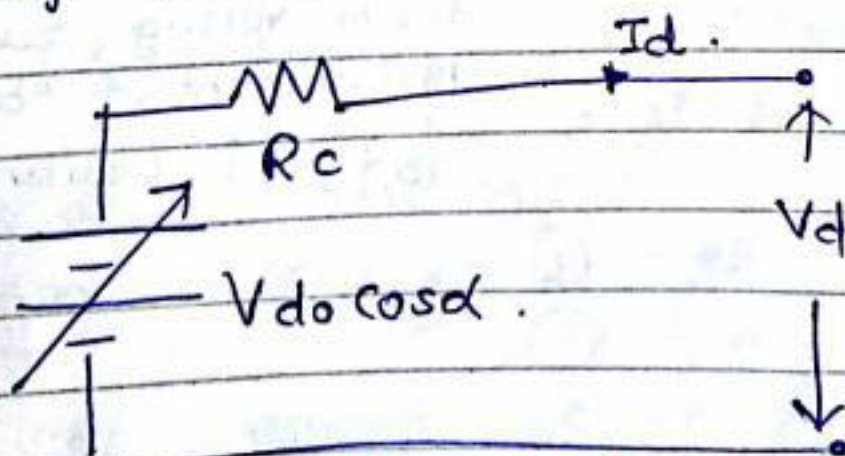 Id.
Rc
Vd
Vdo cosα.